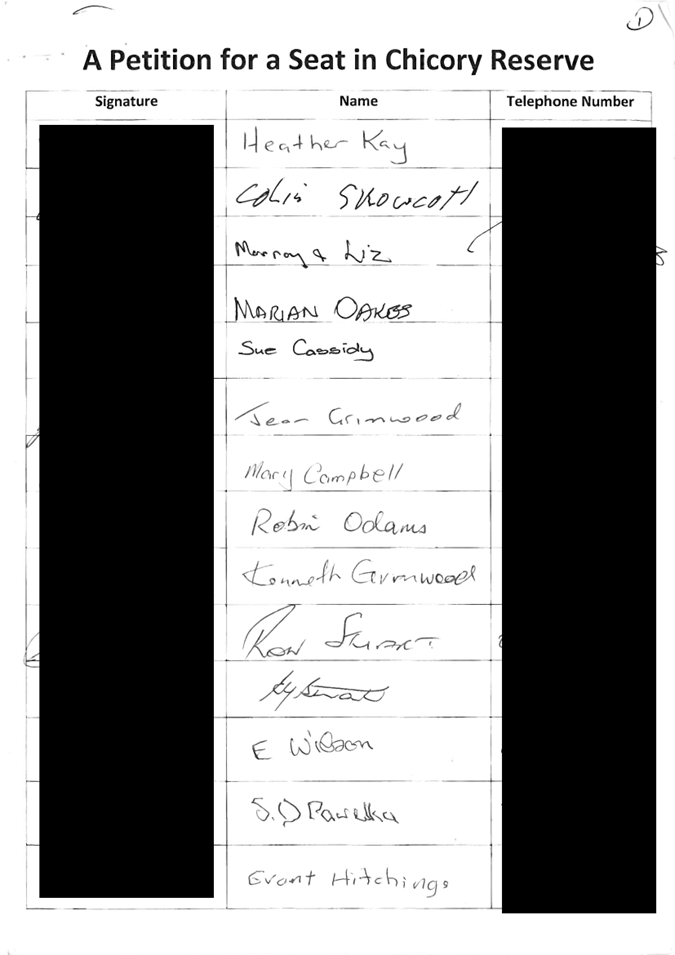 1
A Petition for a Seat in Chicory Reserve
Signature Name Telephone Number
Heather Kay
Colin
Murray & Liz
MARIAN OAKES
Sue Cassidy
Jean Grimwood
Mary Campbell
Robin Odams
Kenneth Grimwood
RON STUART
E Wilson
S. D Pawelka
Grant Hitchings